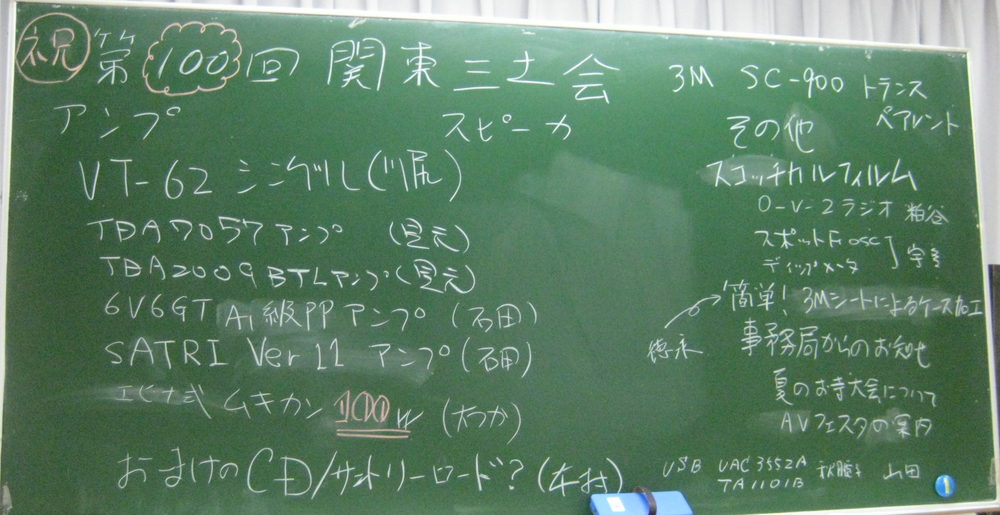 祝 第100回 関東三土会
3M SC-900 トランス
ペアレント
アンプ
スピーカ
その他
VT-62 シングル(川尻)
TDA7057アンプ (星元)
TDA2009BTLアンプ(星元)
6V6GT A1級PPアンプ (石田)
SATRI Ver 11 アンプ(石田)
ムキカン 100W (大つか)
おまけのCD/サントリーロード?(本村)
スコッチカルフィルム
0-V-2ラジオ 粕谷
スポットFr OSC
ディップメータ
簡単! 3Mシートによるケース加工
徳永
事務局からのお知せ
夏のお寺大会について
AVフェスタの案内
USB UAC3552A
TA1101B
山田
1